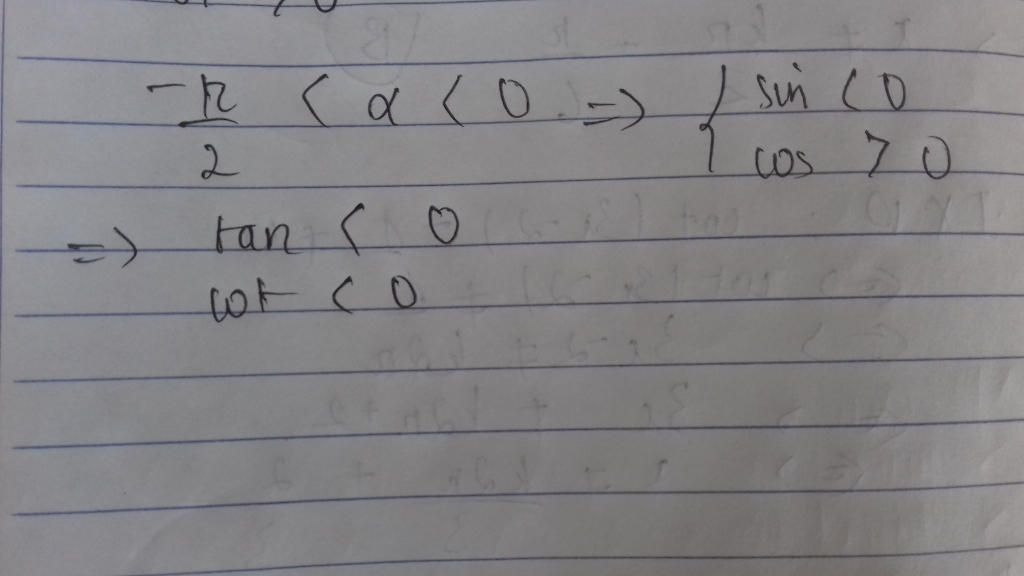 -π/2 < α < 0 => { sin < 0
cos > 0
=> tan < 0
cot < 0